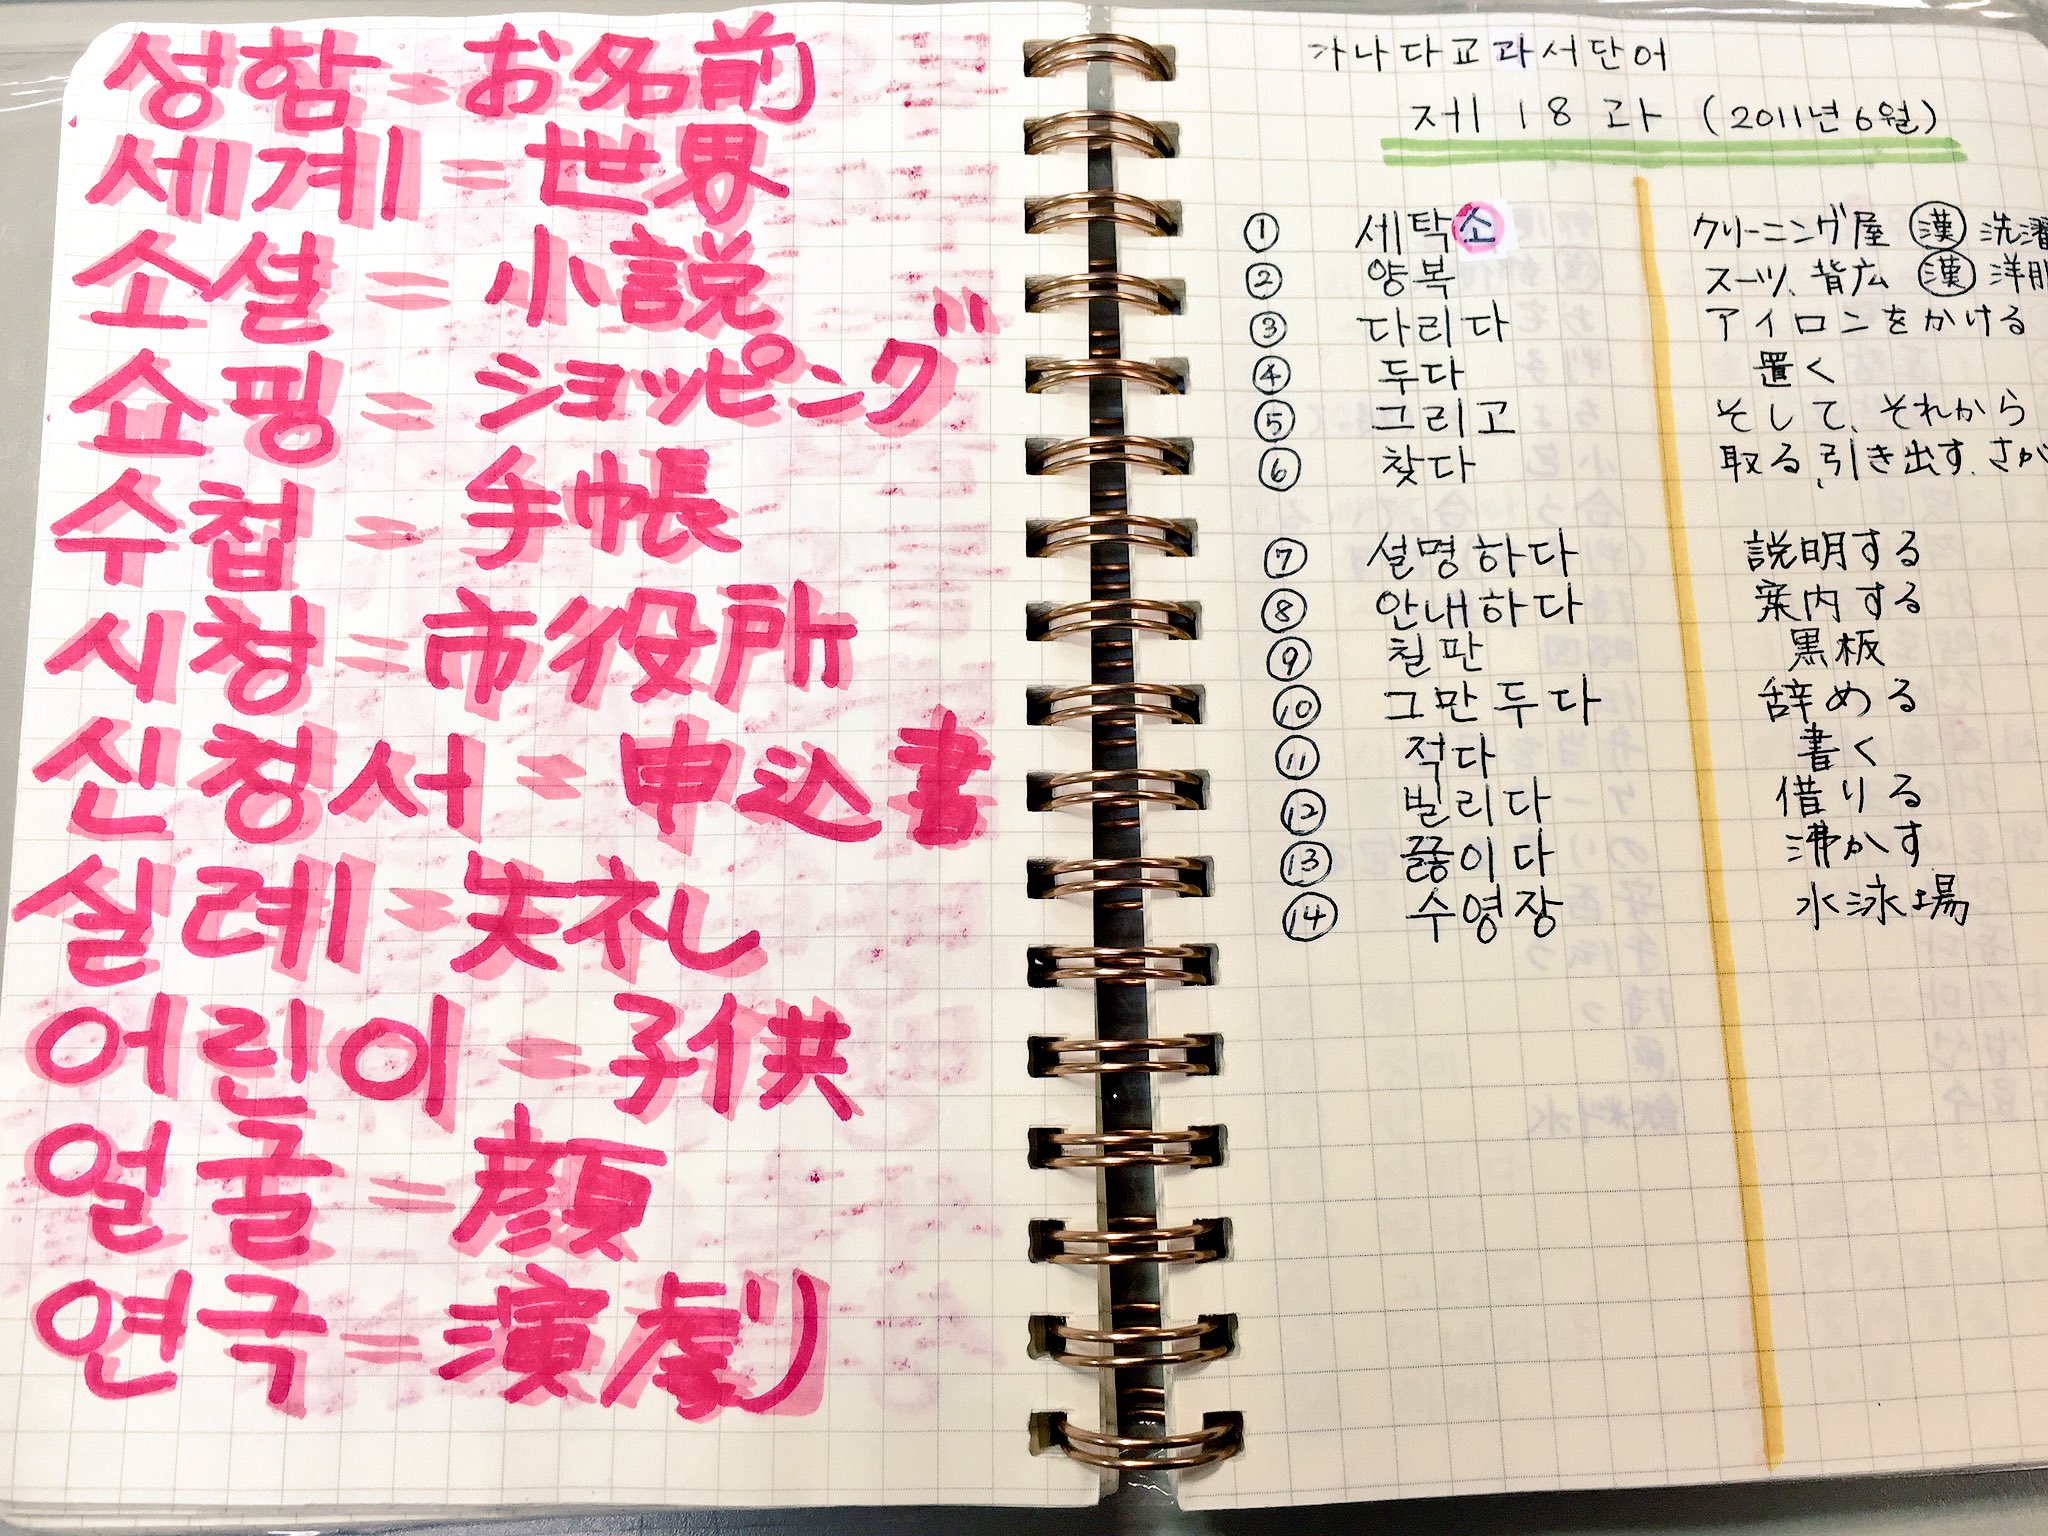 성함=お名前
세계=世界
소설=小説
쇼핑=ショッピング
수첩=手帳
시청=市役所
신청서=申込書
실례=失礼
어린이=子供
얼굴=顔
연극=演劇
가나다교과서단어
제18과 (2011년 6월)
① 세탁소 クリーニング屋 漢 洗濯
② 양복 スーツ、背広 漢 洋服
③ 다리다 アイロンをかける
④ 두다 置く
⑤ 그리고 そして、それから
⑥ 찾다 取る、引き出す、さが
⑦ 설명하다 説明する
⑧ 안내하다 案内する
⑨ 칠판 黒板
⑩ 그만두다 辞める
⑪ 적다 書く
⑫ 빌리다 借りる
⑬ 끓이다 沸かす
⑭ 수영장 水泳場